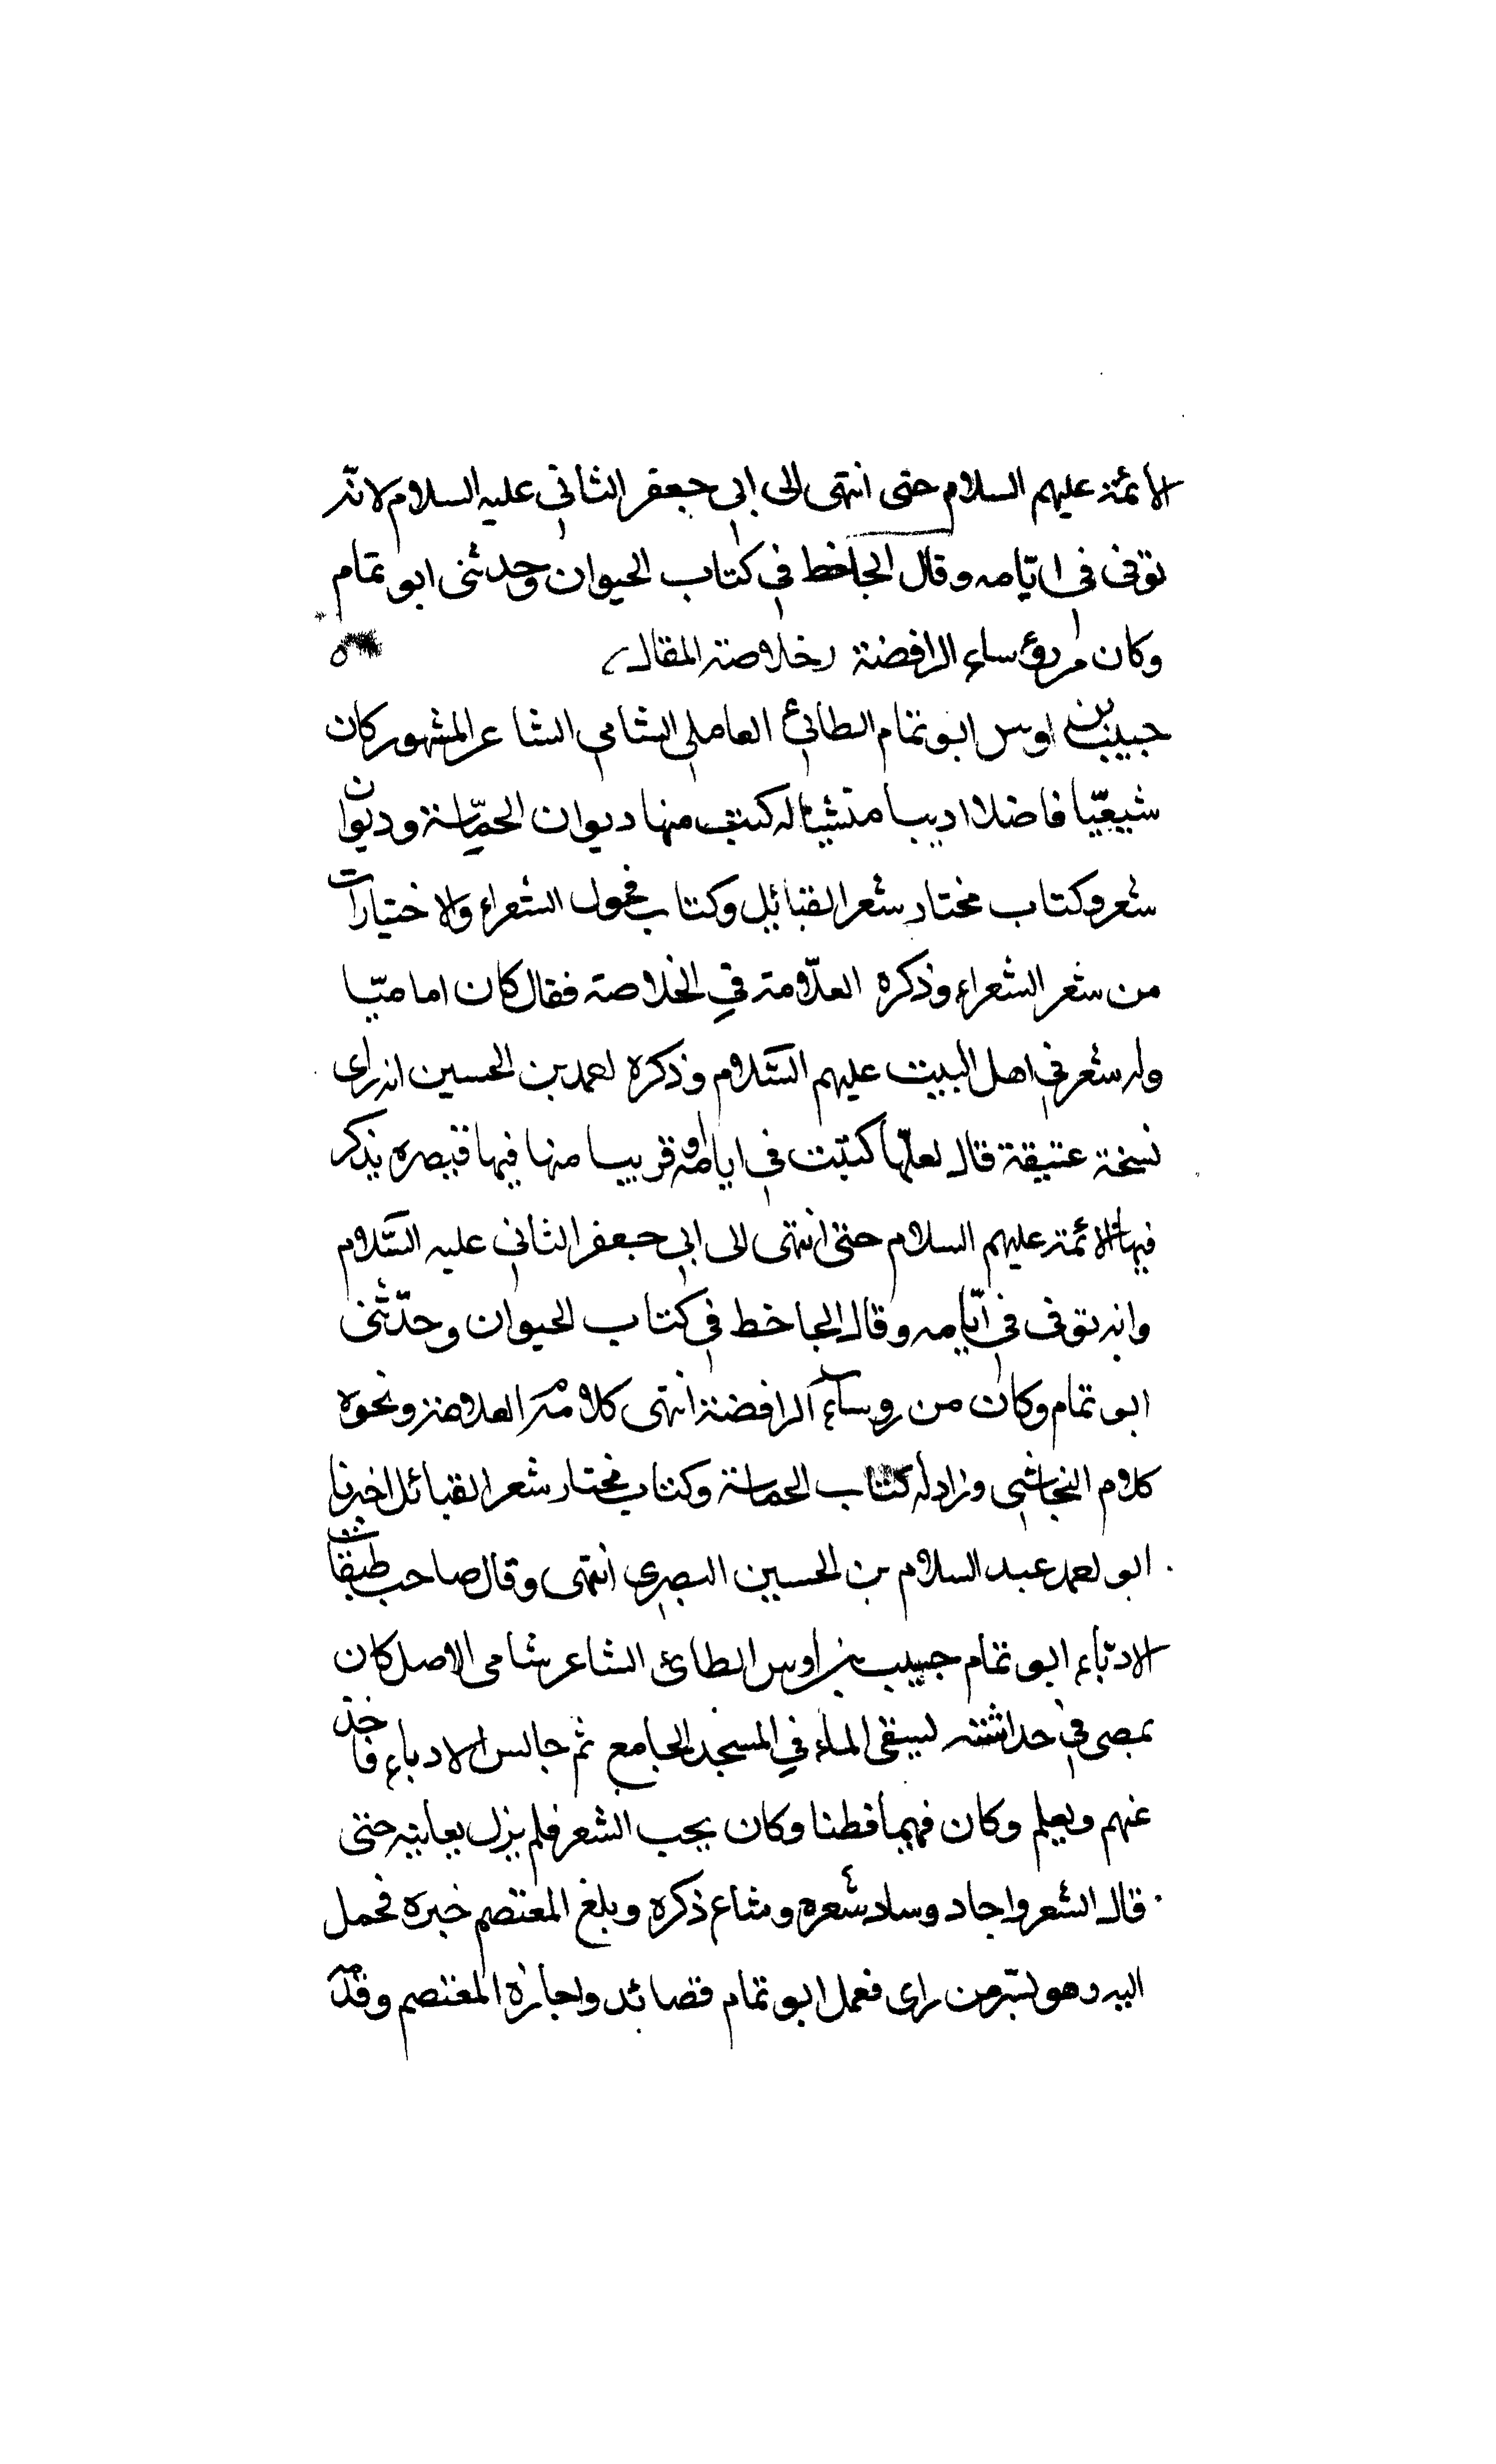 الأئمة عليهم السلام حتى انتهى الى ابي جعفر الثاني عليه السلام لانه
توفى في ايّامه وقال الجاخط في كتاب الحيوان وحدثنى ابو تمام
وكان من رؤساء الرافضة خلاصة المقال
حبيب بن اوس ابو تمام الطائي العاملي الشامي الشاعر المشهور كان
شيعيّا فاضلا اديبا منشيا له كتب منها ديوان الحماسة وديوان
شعره وكتاب مختار شعر القبائل وكتاب فحول الشعراء والاختيارات
من شعر الشعراء وذكره العلّامة في الخلاصة فقال كان اماميّا
وله شعر في اهل البيت عليهم السّلام وذكره احمد بن الحسين انه راى
نسخة عتيقة قال لعلّها كتبت في ايامه او قريبا منها فيها قصيره يذكر
فيها الأئمة عليهم السلام حتى انتهى الى ابي جعفر الثاني عليه السّلام
وانه توفى في ايّامه وقال الجاخط في كتاب الحيوان وحدّثنى
ابو تمام وكان من روساء الرافضة انتهى كلامه العلامة ونحوه
كلام النجاشي وزاد له كتاب الحماسة وكتاب مختار شعر القبائل اخبرنا
ابو احمد عبد السلام بن الحسين البصري انتهى وقال صاحب طبقات
الادباء ابو تمام حبيب بن اوس الطائي الشاعر شامى الاصل كان
بمصر في حداثته يسقى الماء في المسجد الجامع ثم جالس الادباء فاخذ
عنهم وتعلم وكان فهيما فطنا وكان يحب الشعر فلم يزل يعاينه حتى
قال الشعر واجاد وساد شعره وشاع ذكره وبلغ المعتصم خبره فحمل
اليه وهو بسّر من راى فعمل ابو تمام قصائد واجازه المعتصم وقدّمه